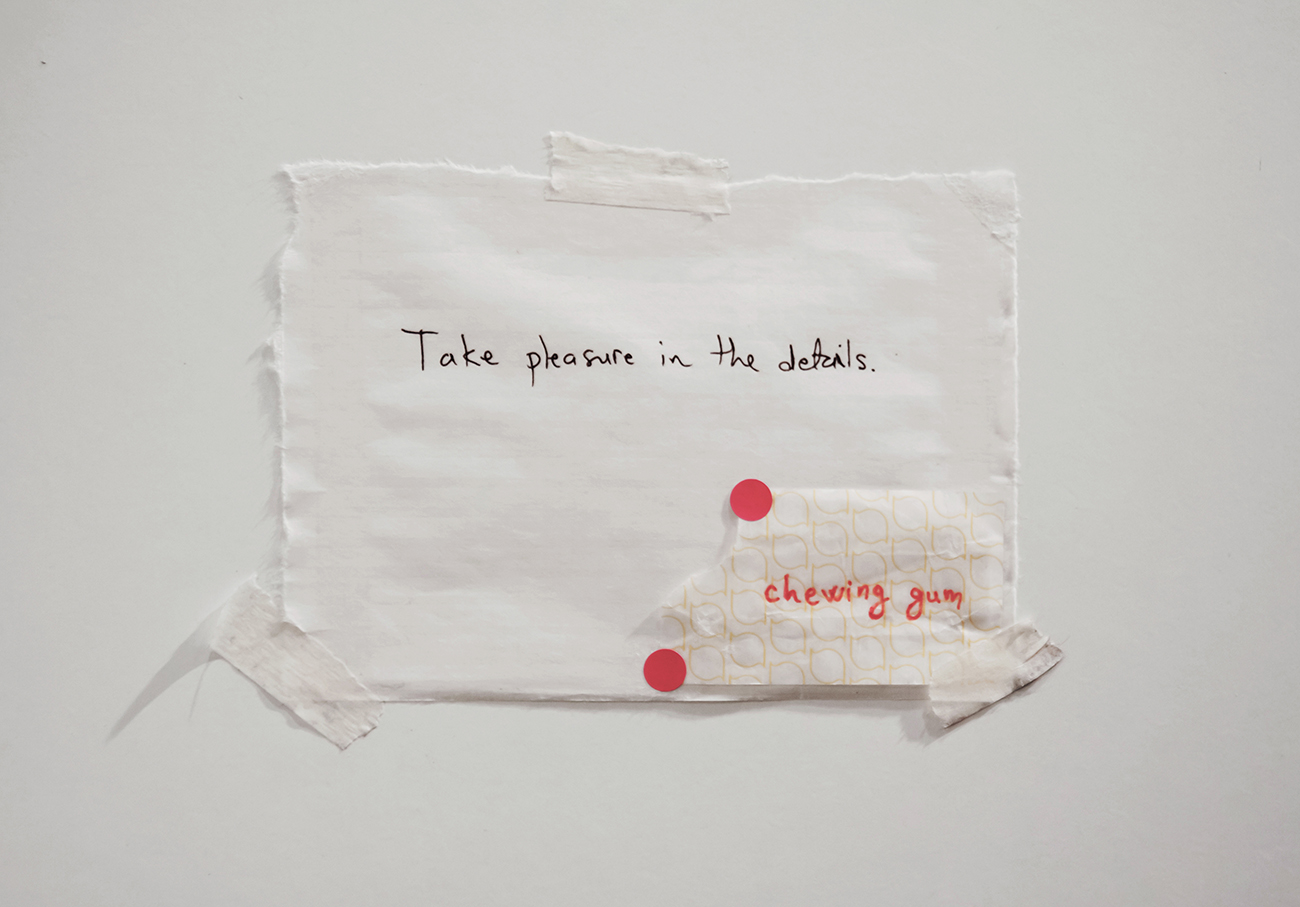 Take pleasure in the details.
chewing gum